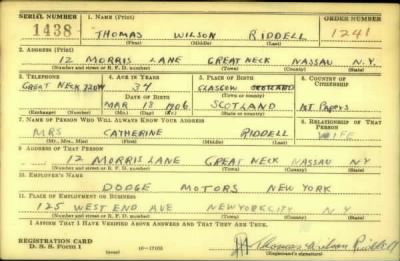 SERIAL NUMBER 1. NAME (Print) ORDER NUMBER
1438 THOMAS WILSON RIDDELL 1241
(First) (Middle) (Last)
2. ADDRESS (Print)
12 MORRIS LANE GREAT NECK NASSAU N.Y.
(Number and street or R. F. D. number) (Town) (County) (State)
3. TELEPHONE 4. AGE IN YEARS 5. PLACE OF BIRTH 6. COUNTRY OF CITIZENSHIP
GREAT NECK 34 GLASGOW
DATE OF BIRTH
MAR 18 1906 SCOTLAND 1st PAPERS
(Exchange) (Number) (Mo.) (Day) (Yr.) (State or country)
7. NAME OF PERSON WHO WILL ALWAYS KNOW YOUR ADDRESS 8. RELATIONSHIP OF THAT PERSON
MRS CATHERINE RIDDELL WIFE
(Mr., Mrs., Miss) (First) (Middle) (Last)
9. ADDRESS OF THAT PERSON
12 MORRIS LANE GREAT NECK NASSAU NY
(Number and street or R. F. D. number) (Town) (County) (State)
10. EMPLOYER'S NAME
DODGE MOTORS NEW YORK
11. PLACE OF EMPLOYMENT OR BUSINESS
125 WEST END AVE NEW YORK CITY NY
(Number and street or R. F. D. number) (Town) (County) (State)
I AFFIRM THAT I HAVE VERIFIED ABOVE ANSWERS AND THAT THEY ARE TRUE.
REGISTRATION CARD
D. S. S. Form 1 Thomas Wilson Riddell
(Registrant's signature)